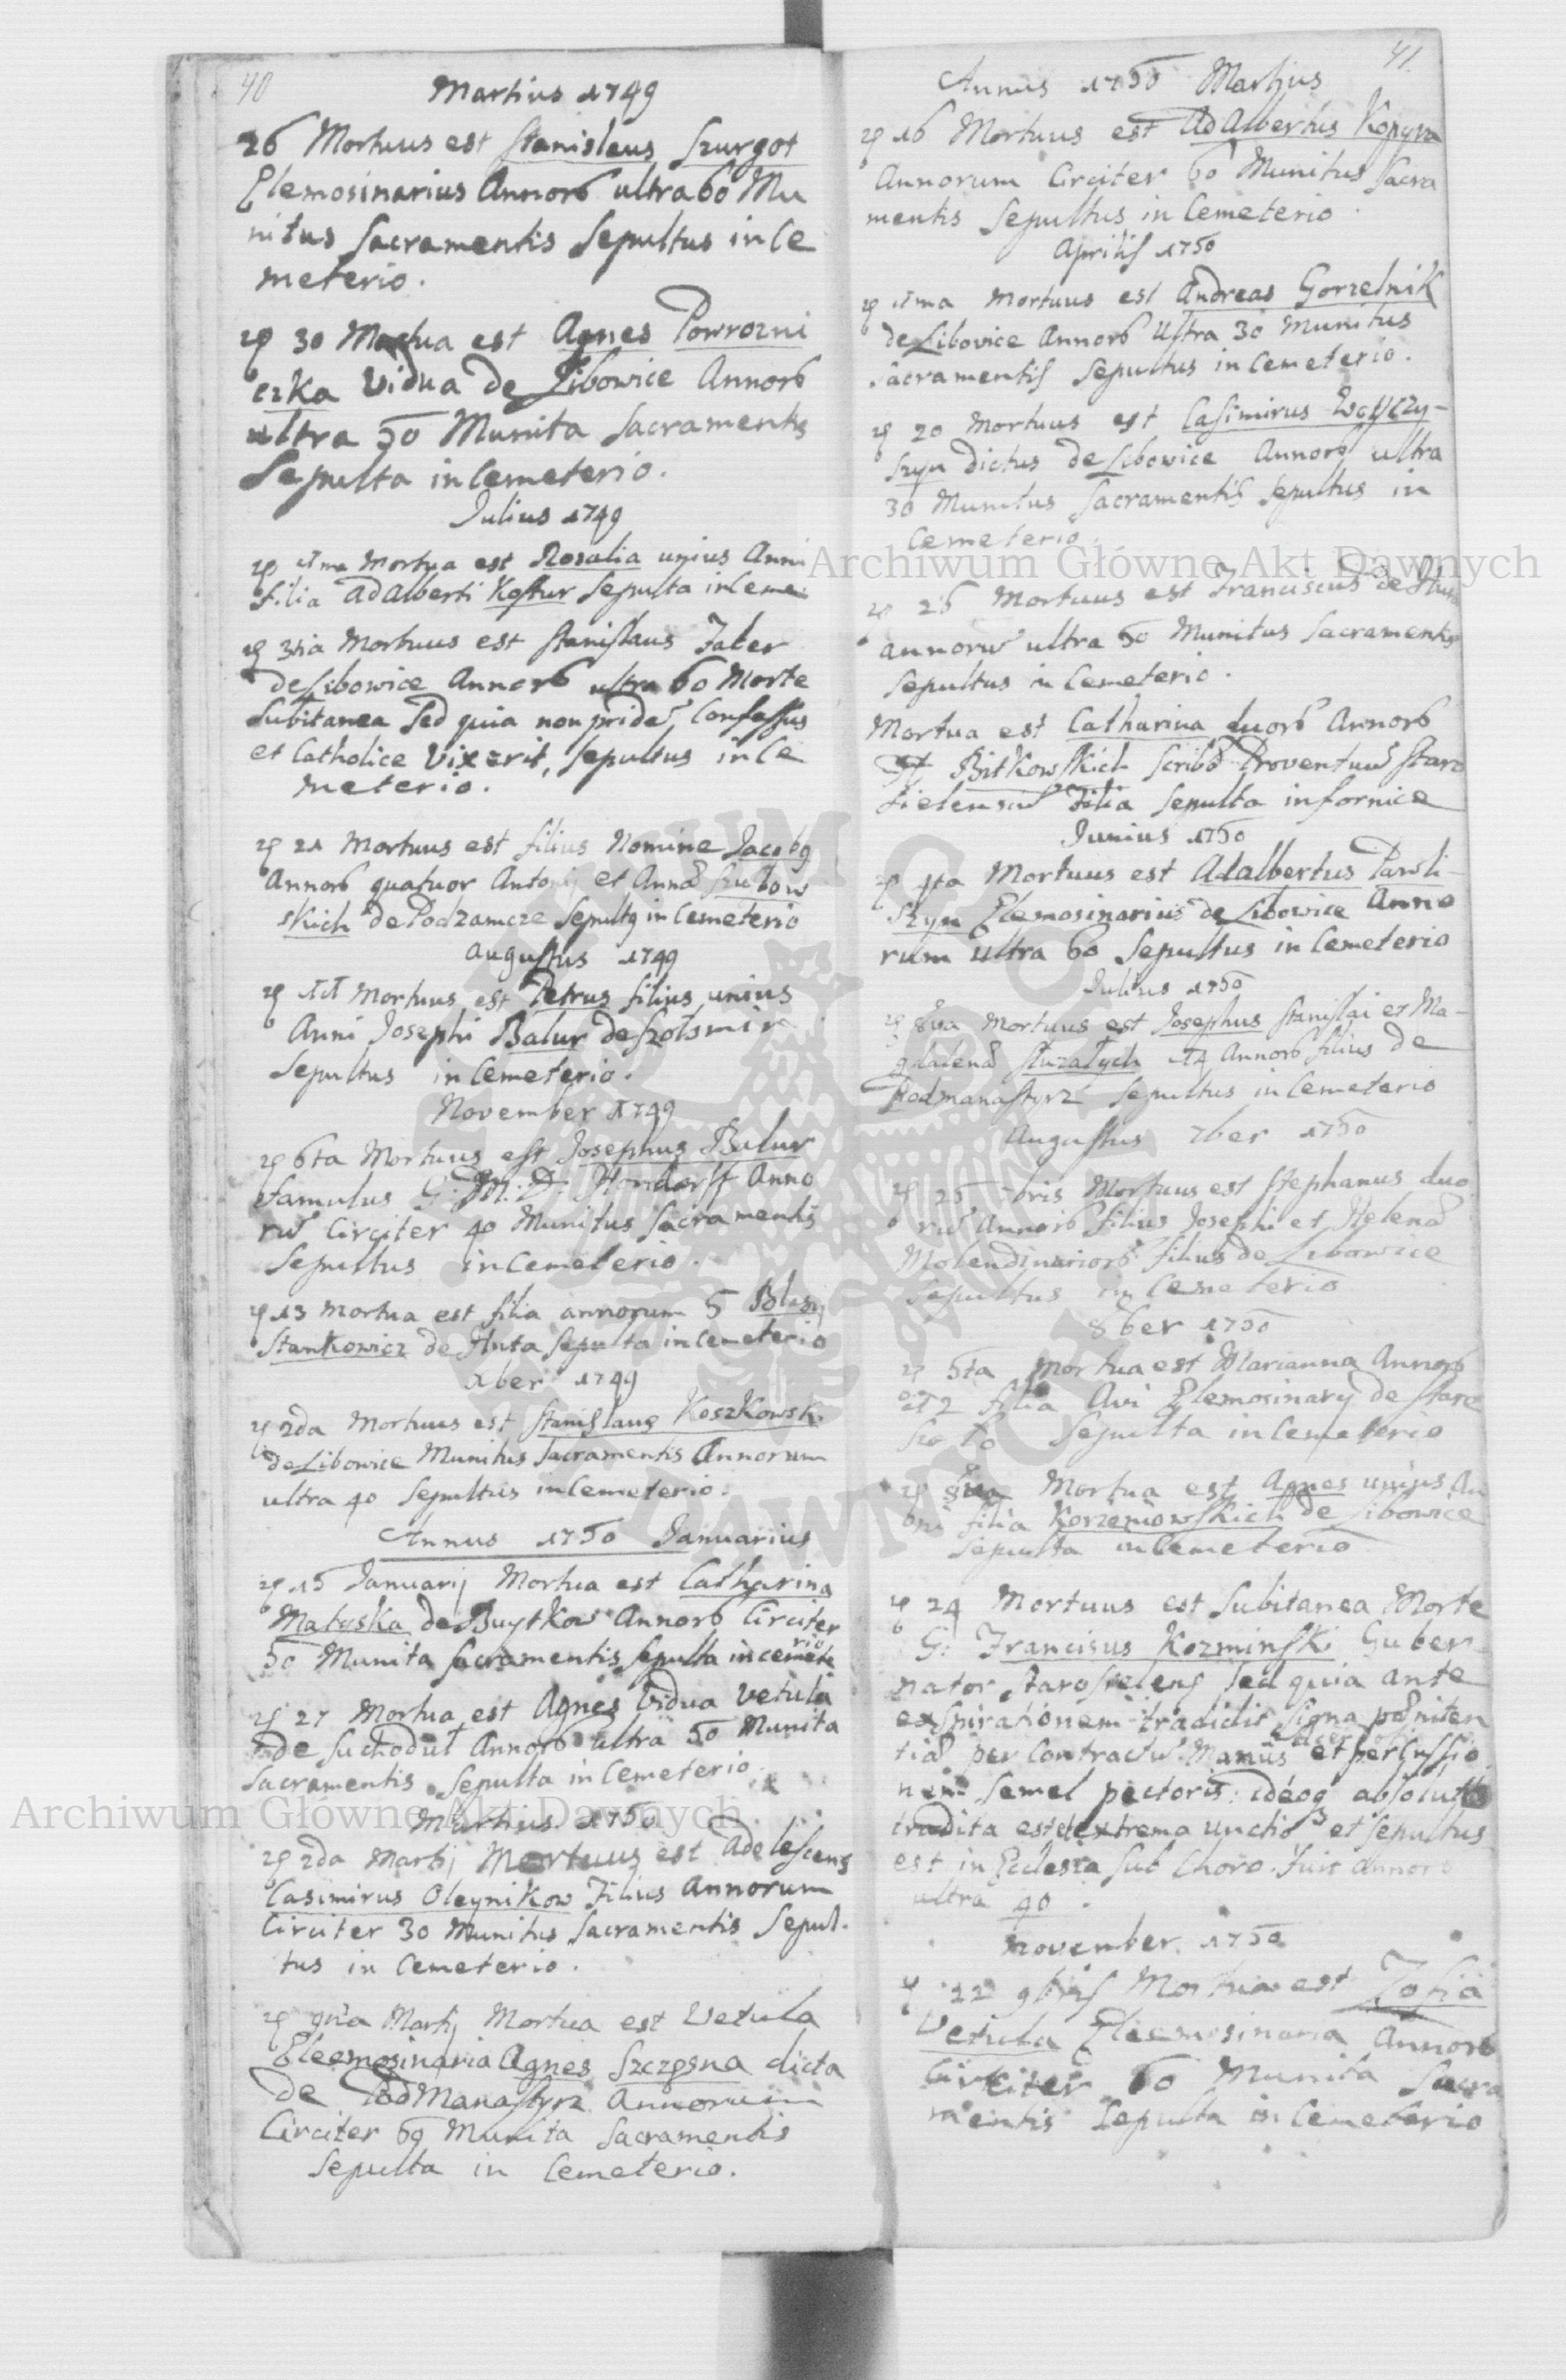 40
Martius 1749
26 Mortuus est Stanislaus Szurgot
Elemosinarius Annorb ultra 60 Mu
nitus Sacramentis Sepultus in Ce
meterio.
30 Mortua est Agnes Powrozni
czka Vidua de Libowice Annorb
ultra 50 Munita Sacramentis
Sepulta in Cemeterio.
Julius 1749
1ma Mortua est Rosalia unius Anni
filia Adalberti Kostur Sepulta in Ceme
3tia Mortuus est Stanislaus Faber
de Libowice Annorb ultra 60 Morte
Subitanea Sed quia non pride Confessus
et Catholice Vixerit, Sepultus in Ce
meterio.
21 Mortuus est filius Nomine Jacobg
Annorb quatuor Antonij et Anna Szubow
skich de Podzamcze Sepultg in Cemeterio
Augustus 1749
Mortuus est Petrus filius unius
Anni Josephi Balur de
Sepultus in Cemeterio.
November 1749
6ta Mortuus est Josephus Balur
famulus G: M: D: Anno
ru Circiter 40 Munitus Sacramentis
Sepultus in Cemeterio.
13 Mortua est filia annorum 5 Blasij
Stankowicz de Huta Sepulta in Cemeterio
xber 1749
2da Mortuus est Stanislaus Koszkowski
de Libowice Munitus Sacramentis Annorum
ultra 40 Sepultus in Cemeterio.
Annus 1750 Januarius
15 Januarij Mortua est Catharina
Mataska de Buytkow Annorb Circiter
50 Munita Sacramentis Sepulta in cemete
rio
27 Mortua est Agnes Vidua Vetula
de Suchodut Annorb ultra 50 Munita
Sacramentis Sepulta in Cemeterio.
Martius 1750
2da Martij Mortuus est Adolescens
Casimirus Oleynikow Filius Annorum
Circiter 30 Munitus Sacramentis Sepul-
tus in Cemeterio.
9na Martij Mortua est Vetula
Eleemosinaria Agnes Szczesna dicta
de Podmanastyrz Annorum
Circiter 69 Munita Sacramentis
Sepulta in Cemeterio.
41
Annus 1750 Martius
16 Mortuus est Adalbertus Kopyra
Annorum Circiter 60 Munitus Sacra
mentis Sepultus in Cemeterio.
Aprilis 1750
1ma Mortuus est Andreas Gorzelnik
de Libovice Annorb Ultra 30 Munitus
Sacramentis Sepultus in Cemeterio.
20 Mortuus est Casimirus
Szyn dictus de Libowice Annorb ultra
30 Munitus Sacramentis Sepultus in
Cemeterio.
26 Mortuus est Franciscus de
annoru ultra 50 Munitus Sacramentis
Sepultus in Cemeterio.
Mortua est Catharina duorb Annorb
Bitkowskich Scriba Proventuu Staro
Filia Sepulta in fornice
Junius 1750
4ta Mortuus est Adalbertus Pawli-
Szyn Elemosinarius de Libowice Anno
rum ultra 60 Sepultus in Cemeterio
Julius 1750
8va Mortuus est Josephus Stanislai et Ma-
gdalena 14 Annorb filius de
Podmanastyrz Sepultus in Cemeterio
Augustus 7ber 1750
25 7bris Mortuus est Stephanus duo
ru Annorb filius Josephi et Helena
Molendinariorb filius de Libowice
Sepultus in Cemeterio
8ber 1750
5ta Mortua est Marianna Annorb
12 filia Avi Elemosinarij de Stare
Sepulta in Cemeterio
8va Mortua est Agnes unius An
ni filia Korzeniowskich de Libowice
Sepulta in Cemeterio
24 Mortuus est Subitanea Morte
G: Francisus Kozminski Guber
nator Sed quia ante
exspirationem tradidit Signa poeniten
tia per Contractu Manus et percussio
nem Semel pectoris: ideog absolutio
tradita est et extrema Unctio et Sepultus
est in Ecclesia Sub Choro. Fuit Annorb
ultra 40.
November 1750
22 9bris Mortua est Zofia
Vetula Eleemosinaria Annorb
Circiter 60 Munita Sacra
mentis Sepulta in Cemeterio
Archiwum Główne Akt Dawnych
Archiwum Główne Akt Dawnych